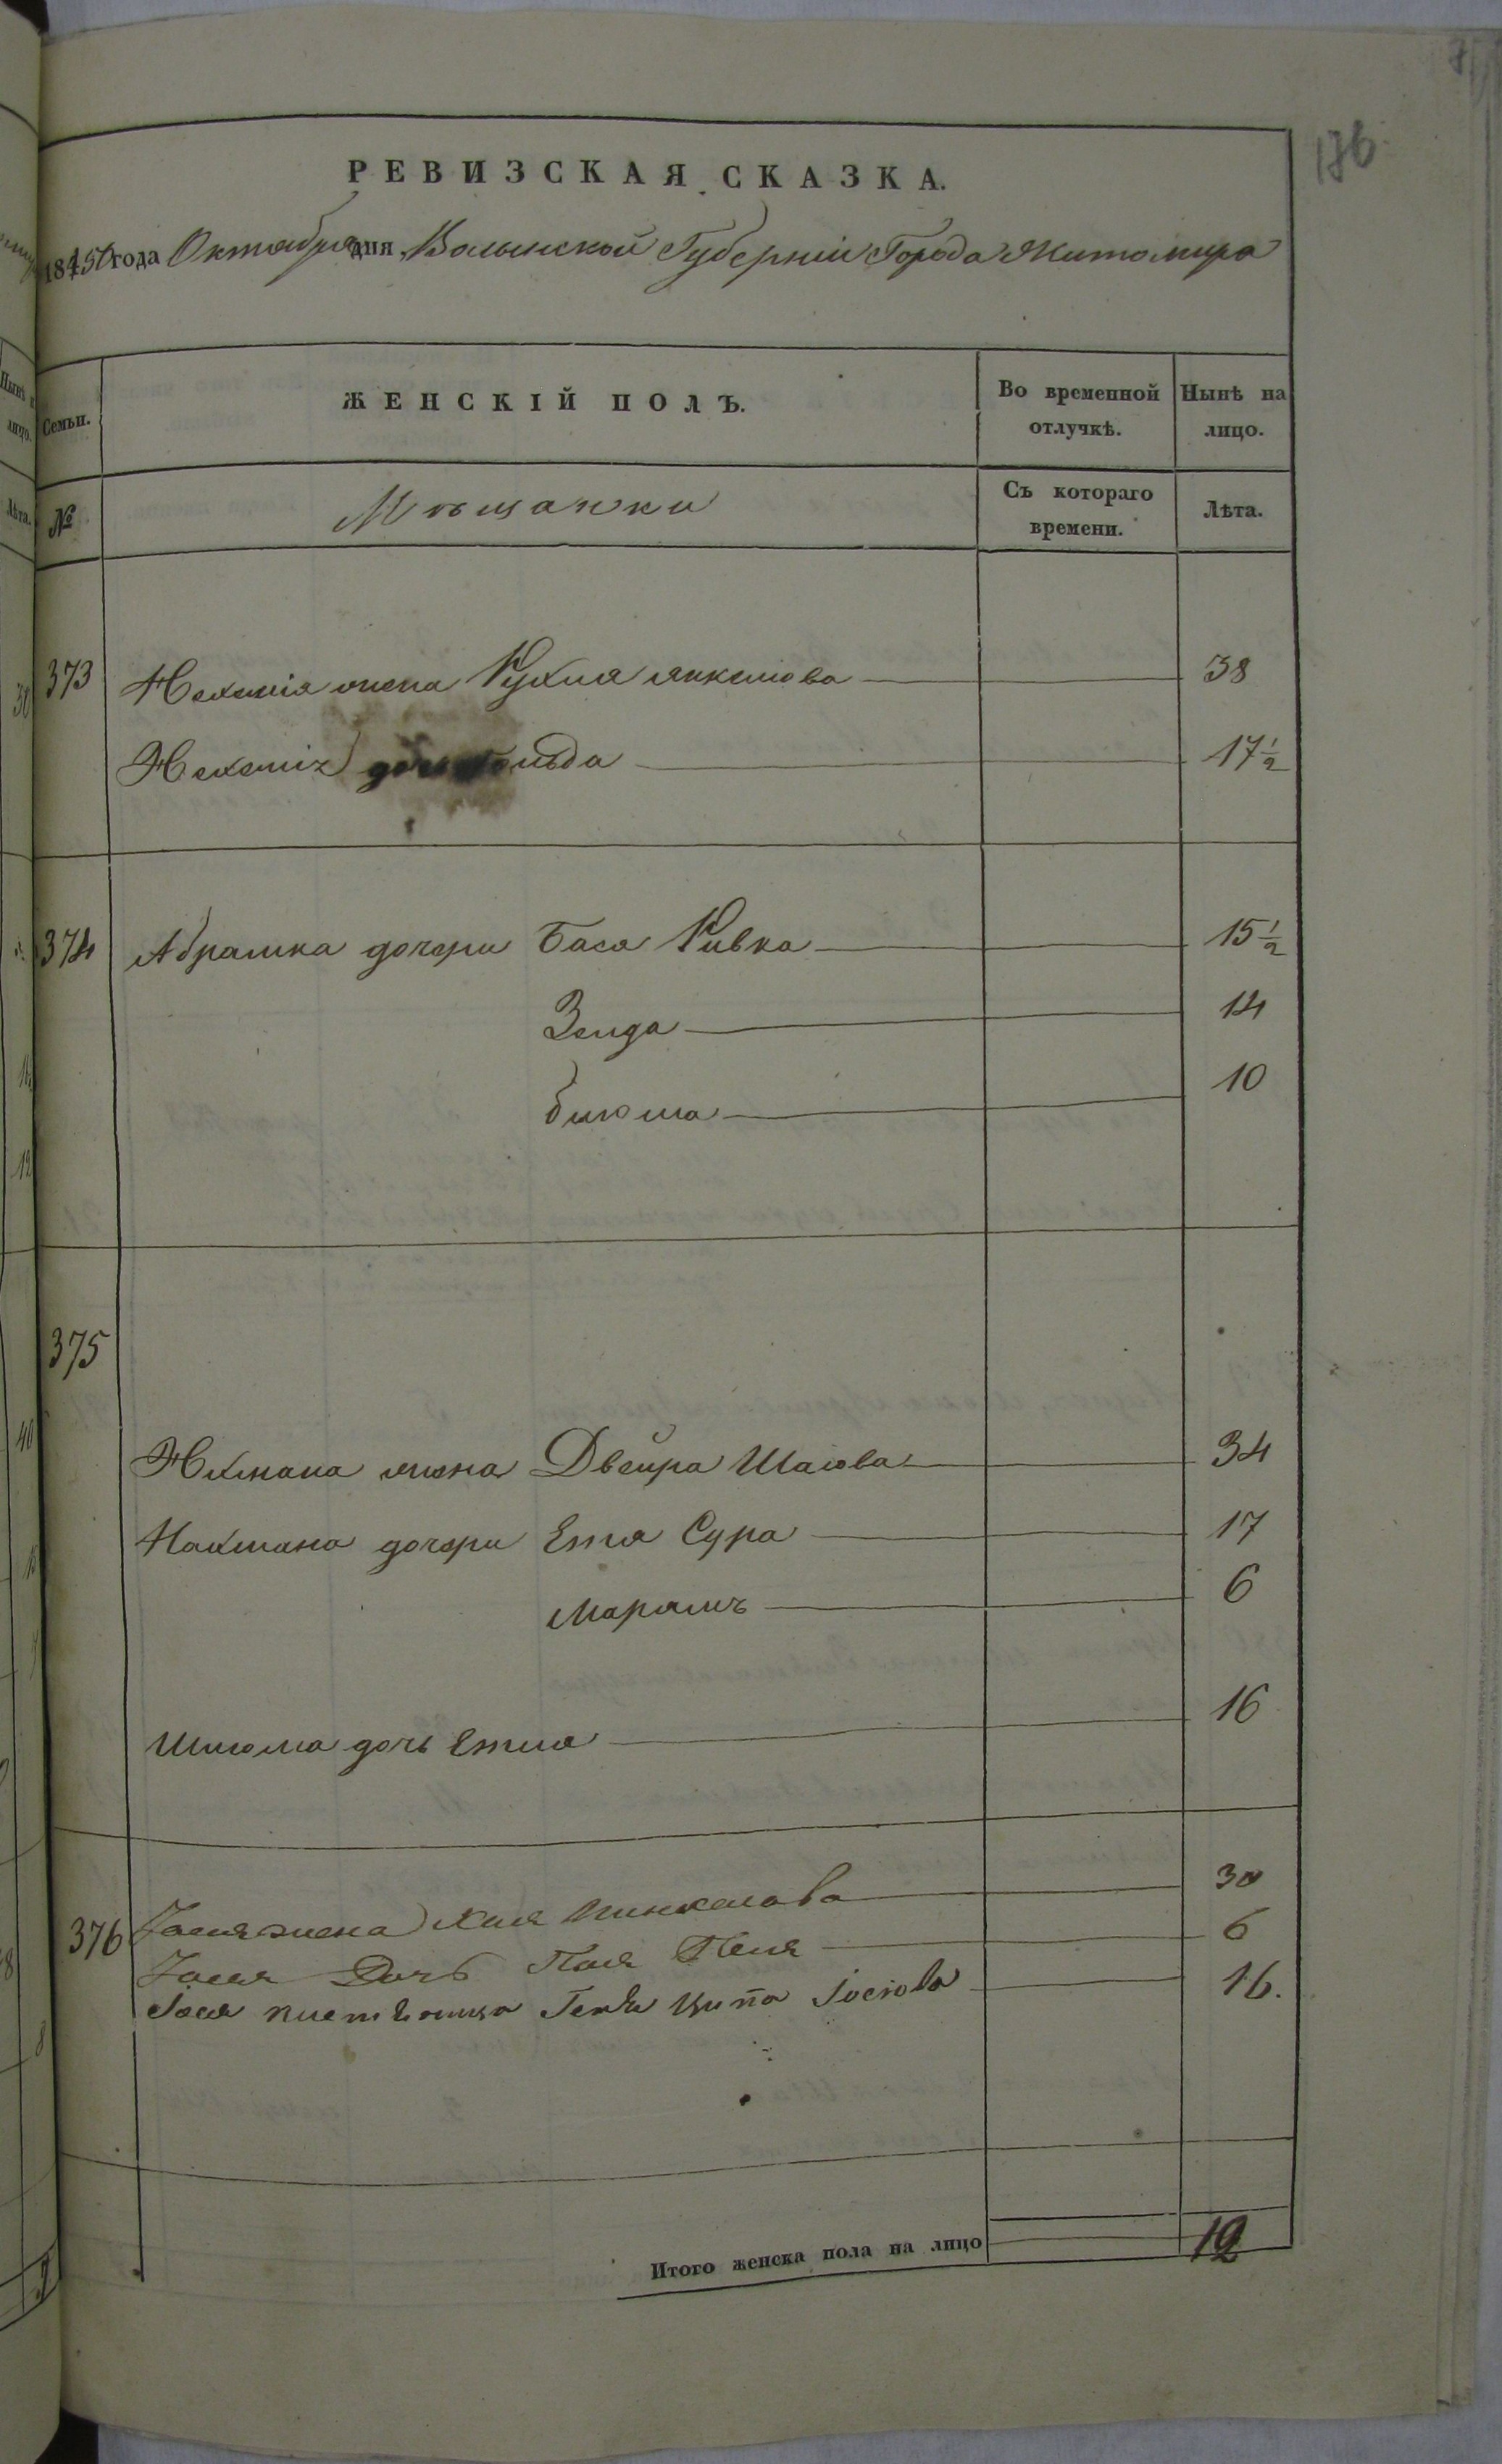 176
РЕВИЗСКАЯ СКАЗКА.
1850 года Октября дня Волынской Губернiи Города Житомира
Семьи.
ЖЕНСКIЙ ПОЛЪ.
Во временной отлучкѣ.
Нынѣ на лицо.
№
Мѣщанки
Съ котораго времени.
Лѣта.
373 Нехемiя жена Рухля Янкелова 38
Нехемiя дочь 17½
374 Абрамка дочери Бася Ривка 15½
Зелда 14
блюма 10
375
Нхмана жена Двейра Шаiова 34
Нахмана дочери Етя Сура 17
Марямъ 6
Шлiома дочь Етля 16
376 жена Хая Пинкасова 30
Дочь 6
Ципа Iосiова 16.
Итого женска пола на лицо 12